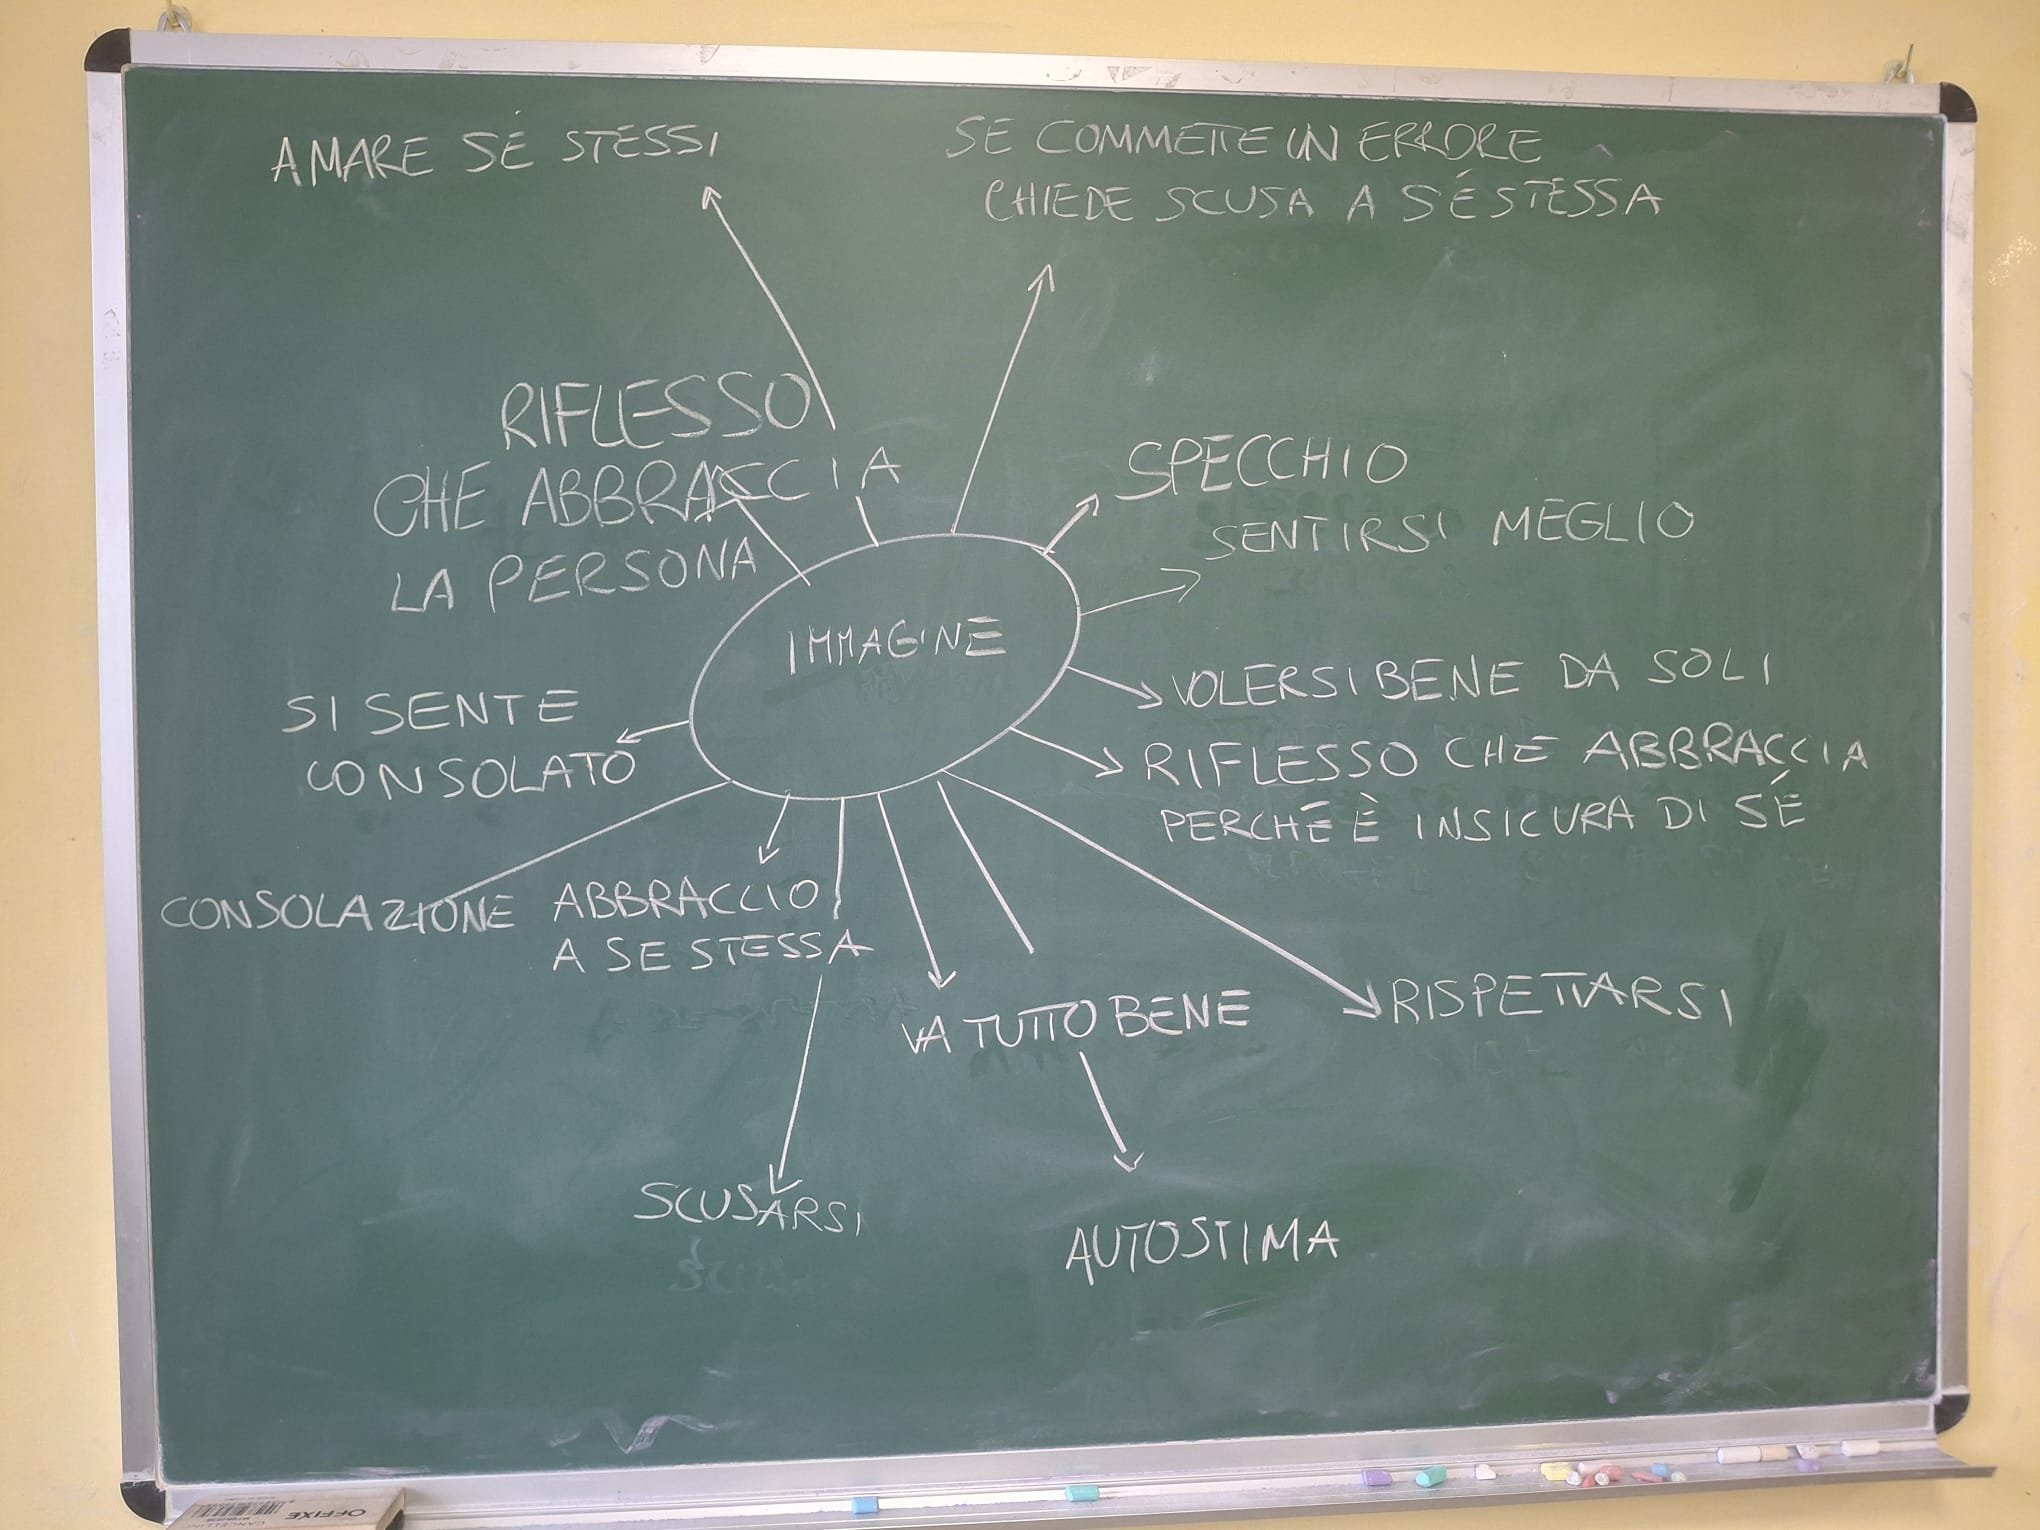 AMARE SÉ STESSI
SE COMMETTE UN ERRORE
CHIEDE SCUSA A SÉ STESSA
RIFLESSO
CHE ABBRACCIA
LA PERSONA
SPECCHIO
SENTIRSI MEGLIO
IMMAGINE
VOLERSI BENE DA SOLI
SI SENTE
CONSOLATO
RIFLESSO CHE ABBRACCIA
PERCHÉ È INSICURA DI SÉ
CONSOLAZIONE
ABBRACCIO
A SE STESSA
VA TUTTO BENE
RISPETTARSI
SCUSARSI
AUTOSTIMA
OFFIXE